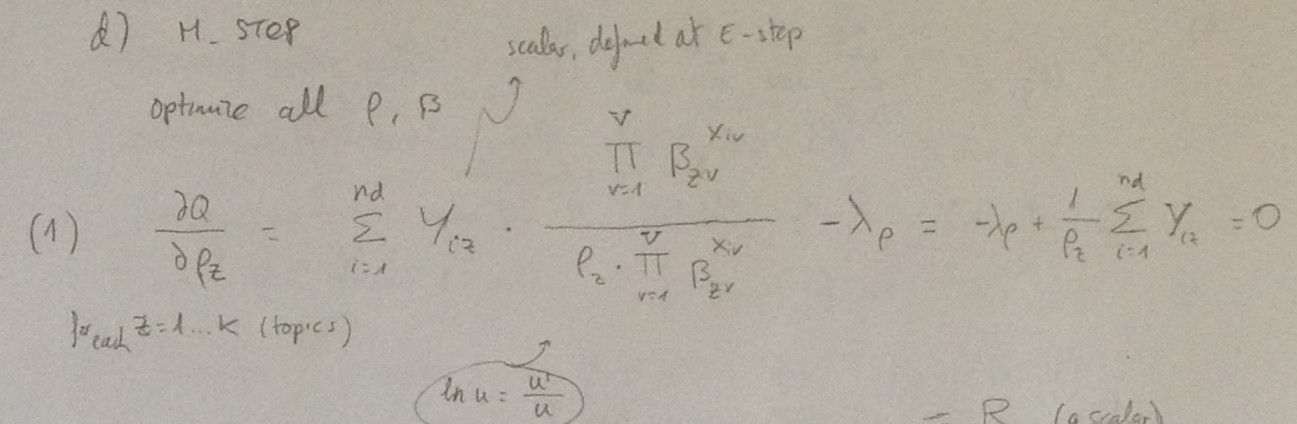 d) M-STEP
scalar, defined at E-step
optimize all ρ, β
(1) ∂Q/∂ρ_z = Σ_{i=1}^{nd} γ_{iz} · (∏_{v=1}^{V} β_{zv}^{x_{iv}}) / (ρ_z · ∏_{v=1}^{V} β_{zv}^{x_{iv}}) - λ_ρ = -λ_ρ + 1/ρ_z Σ_{i=1}^{nd} γ_{iz} = 0
for each z=1...K (topics)
ln u = u'/u
= R (a scalar)